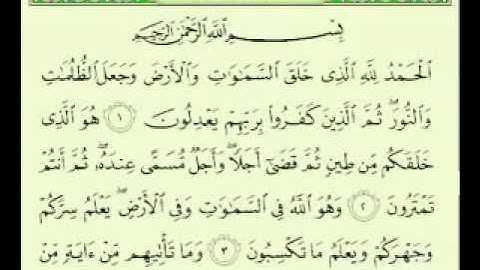 بِسْمِ اللَّهِ الرَّحْمَٰنِ الرَّحِيمِ
الْحَمْدُ لِلَّهِ الَّذِى خَلَقَ السَّمَٰوَٰتِ وَالْأَرْضَ وَجَعَلَ الظُّلُمَٰتِ
وَالنُّورَ ۖ ثُمَّ الَّذِينَ كَفَرُوا۟ بِرَبِّهِمْ يَعْدِلُونَ ١ هُوَ الَّذِى
خَلَقَكُم مِّن طِينٍ ثُمَّ قَضَىٰٓ أَجَلًا ۖ وَأَجَلٌ مُّسَمًّى عِندَهُۥ ۖ ثُمَّ أَنتُمْ
تَمْتَرُونَ ٢ وَهُوَ اللَّهُ فِى السَّمَٰوَٰتِ وَفِى الْأَرْضِ ۖ يَعْلَمُ سِرَّكُمْ
وَجَهْرَكُمْ وَيَعْلَمُ مَا تَكْسِبُونَ ٣ وَمَا تَأْتِيهِم مِّنْ ءَايَةٍ مِّنْ